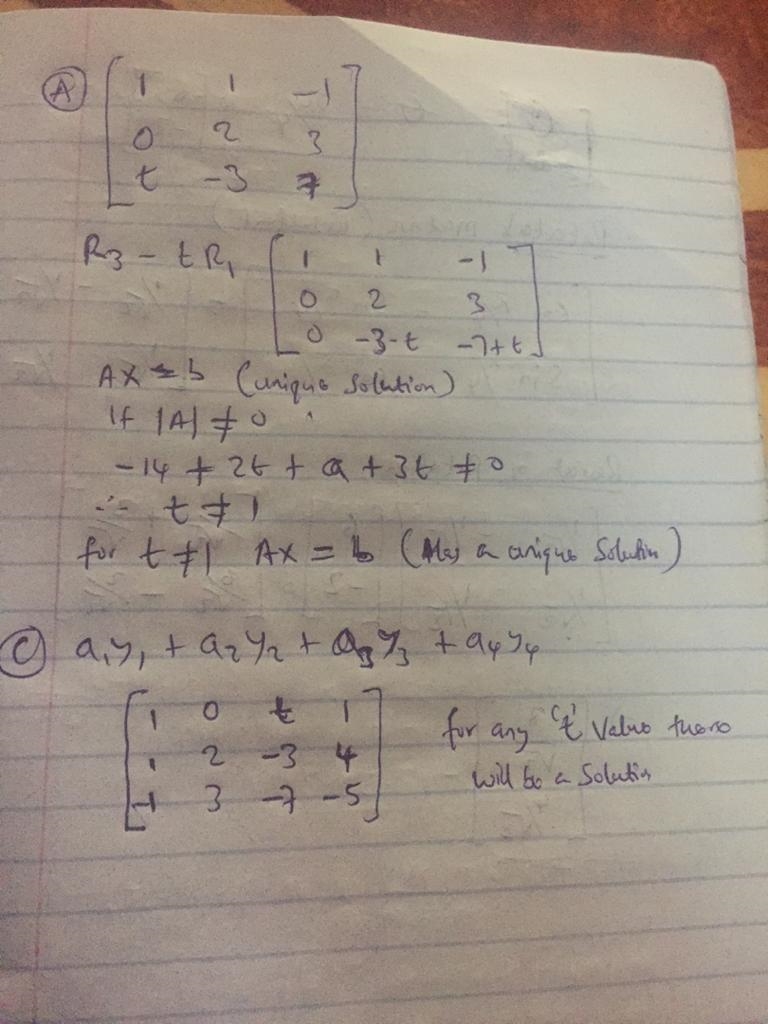 Ⓐ [ 1 1 -1
0 2 3
t -3 7 ]
R3 - t R1 [ 1 1 -1
0 2 3
0 -3-t -7+t ]
AX = b (unique solution)
If |A| ≠ 0
-14 + 2t + 9 + 3t ≠ 0
∴ t ≠ 1
for t ≠ 1 AX = b (Has a unique Solution)
Ⓒ a1y1 + a2y2 + a3y3 + a4y4
[ 1 0 t 1
1 2 -3 4
-1 3 -7 -5 ]
for any 't' Value there
will be a Solution